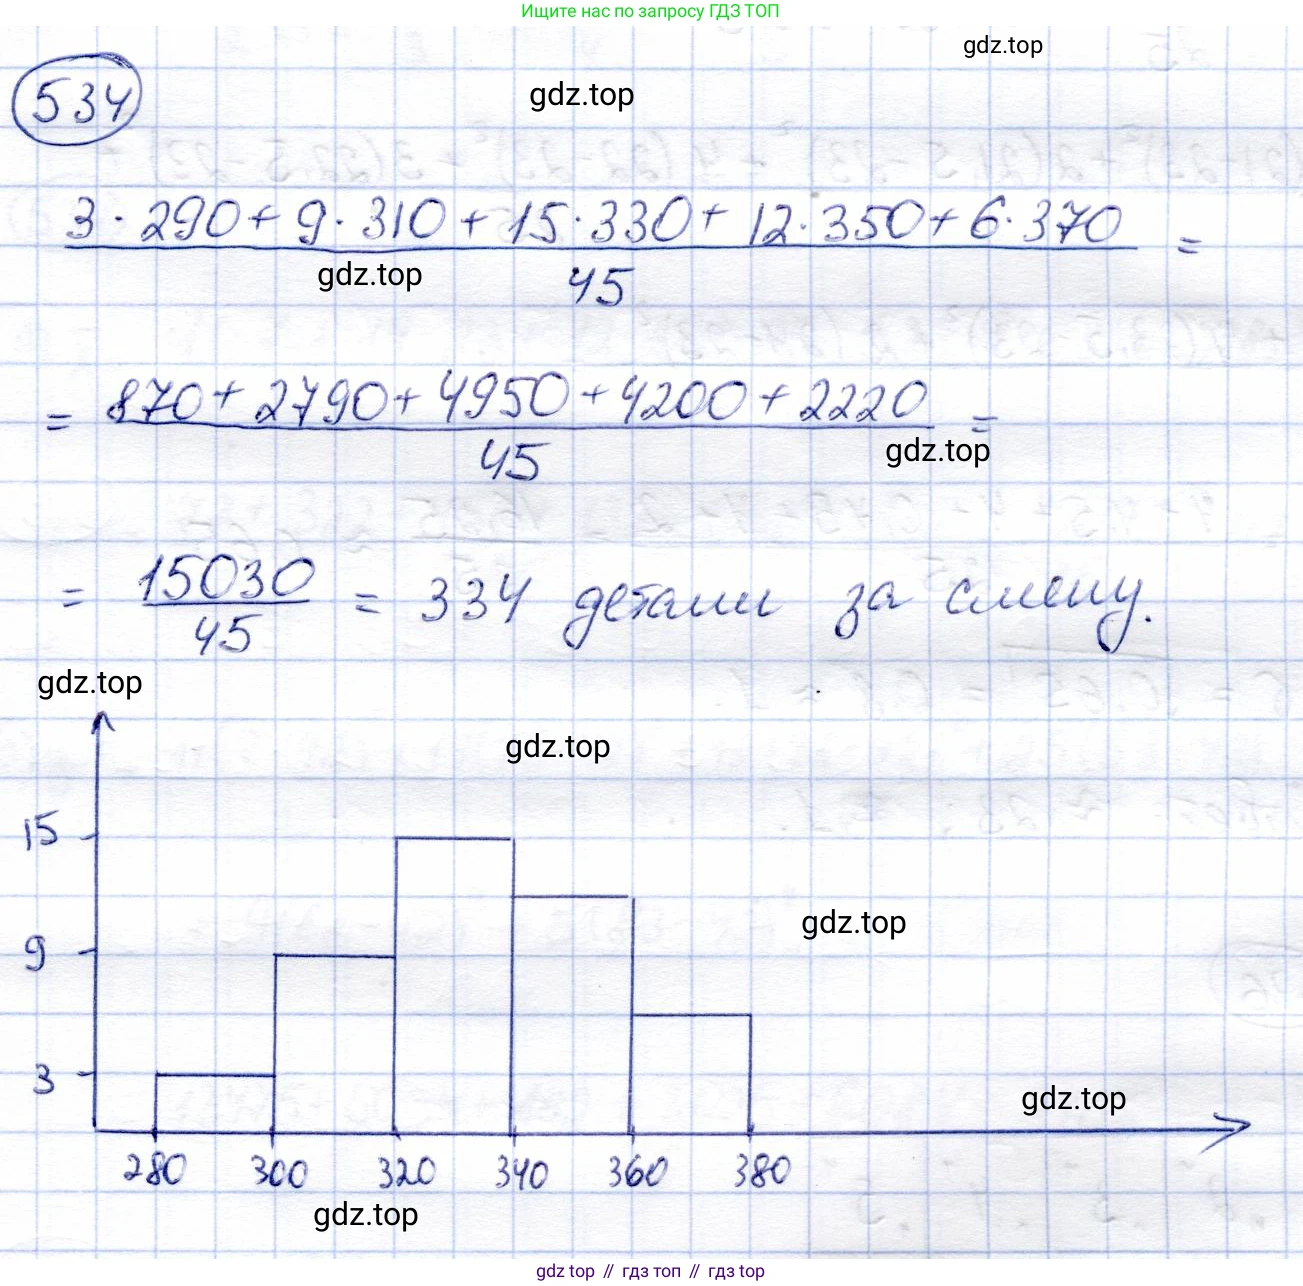 Ищите нас по запросу ГДЗ ТОП
gdz.top
534
gdz.top
3 · 290 + 9 · 310 + 15 · 330 + 12 · 350 + 6 · 370 =
45
gdz.top
= 870 + 2790 + 4950 + 4200 + 2220 =
45
gdz.top
= 15030 = 334 детали за смену.
45
gdz.top
gdz.top
15
9
gdz.top
3
gdz.top
280 300 320 340 360 380
gdz.top
gdz top // гдз топ // гдз top